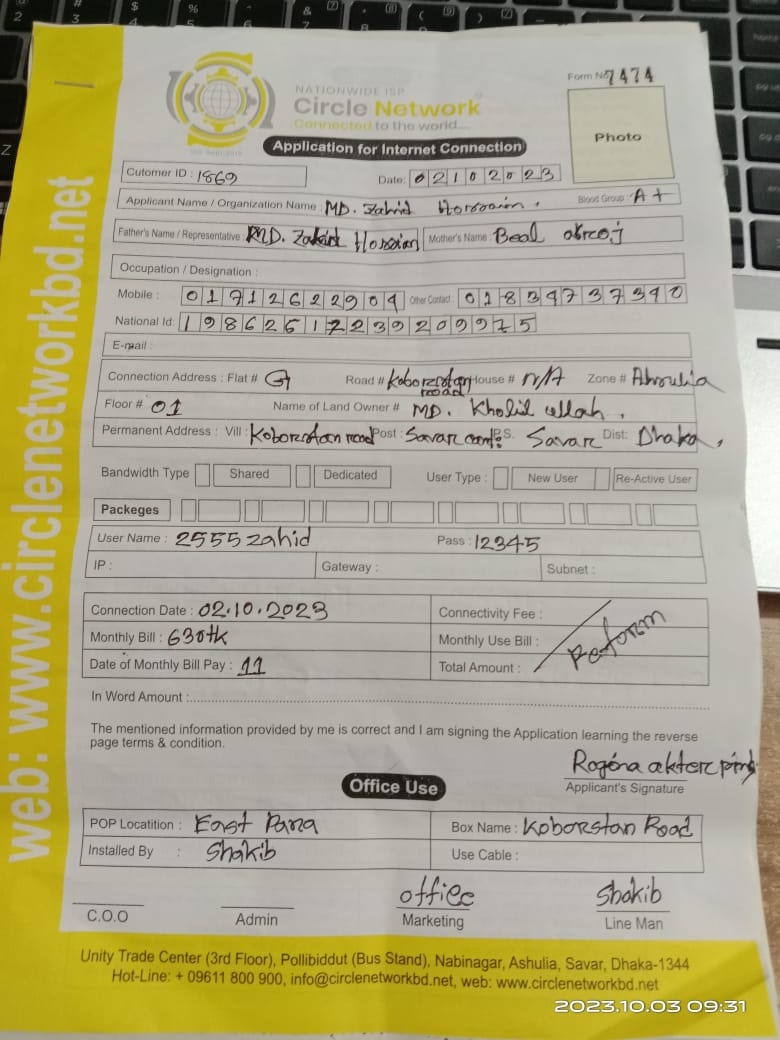 NATIONWIDE ISP
Circle Network
Connected to the world....
Form No 7474
Photo
Application for Internet Connection
Cutomer ID : 1869 Date: 02102023
Applicant Name / Organization Name : MD. Zahid Hossain. Blood Group : A+
Father's Name / Representative : MD. Zakird Hossian Mother's Name : Beal
Occupation / Designation :
Mobile : 01712622904 Other Contact : 01834737390
National Id: 19862617239209975
E-mail :
Connection Address : Flat # G Road # Koborstan road House # n/A Zone # Ahsulia
Floor # 01 Name of Land Owner # MD. Kholil ullah,
Permanent Address : Vill : Koborstan road Post : Savar cant: P.S. Savar Dist: Dhaka,
Bandwidth Type Shared Dedicated User Type : New User Re-Active User
Packeges
User Name : 2555zahid Pass : 12345
IP : Gateway : Subnet :
Connection Date : 02.10.2023 Connectivity Fee :
Monthly Bill : 630tk Monthly Use Bill : Reform
Date of Monthly Bill Pay : 11 Total Amount :
In Word Amount :
The mentioned information provided by me is correct and I am signing the Application learning the reverse
page terms & condition.
Rogina akter
Applicant's Signature
Office Use
POP Locatition : East Para Box Name : Koborstan Road
Installed By : Shakib Use Cable :
office Shakib
C.O.O Admin Marketing Line Man
Unity Trade Center (3rd Floor), Pollibiddut (Bus Stand), Nabinagar, Ashulia, Savar, Dhaka-1344
Hot-Line: + 09611 800 900, info@circlenetworkbd.net, web: www.circlenetworkbd.net
web: www.circlenetworkbd.net
2023.10.03 09:31